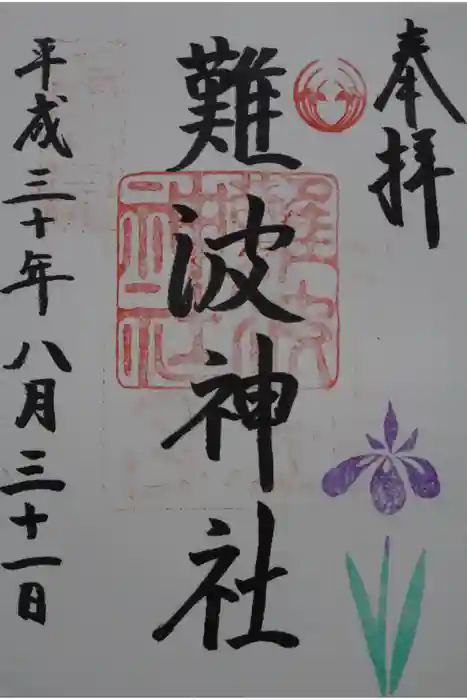 奉拝
難波神社
平成三十年八月三十一日
難波神社